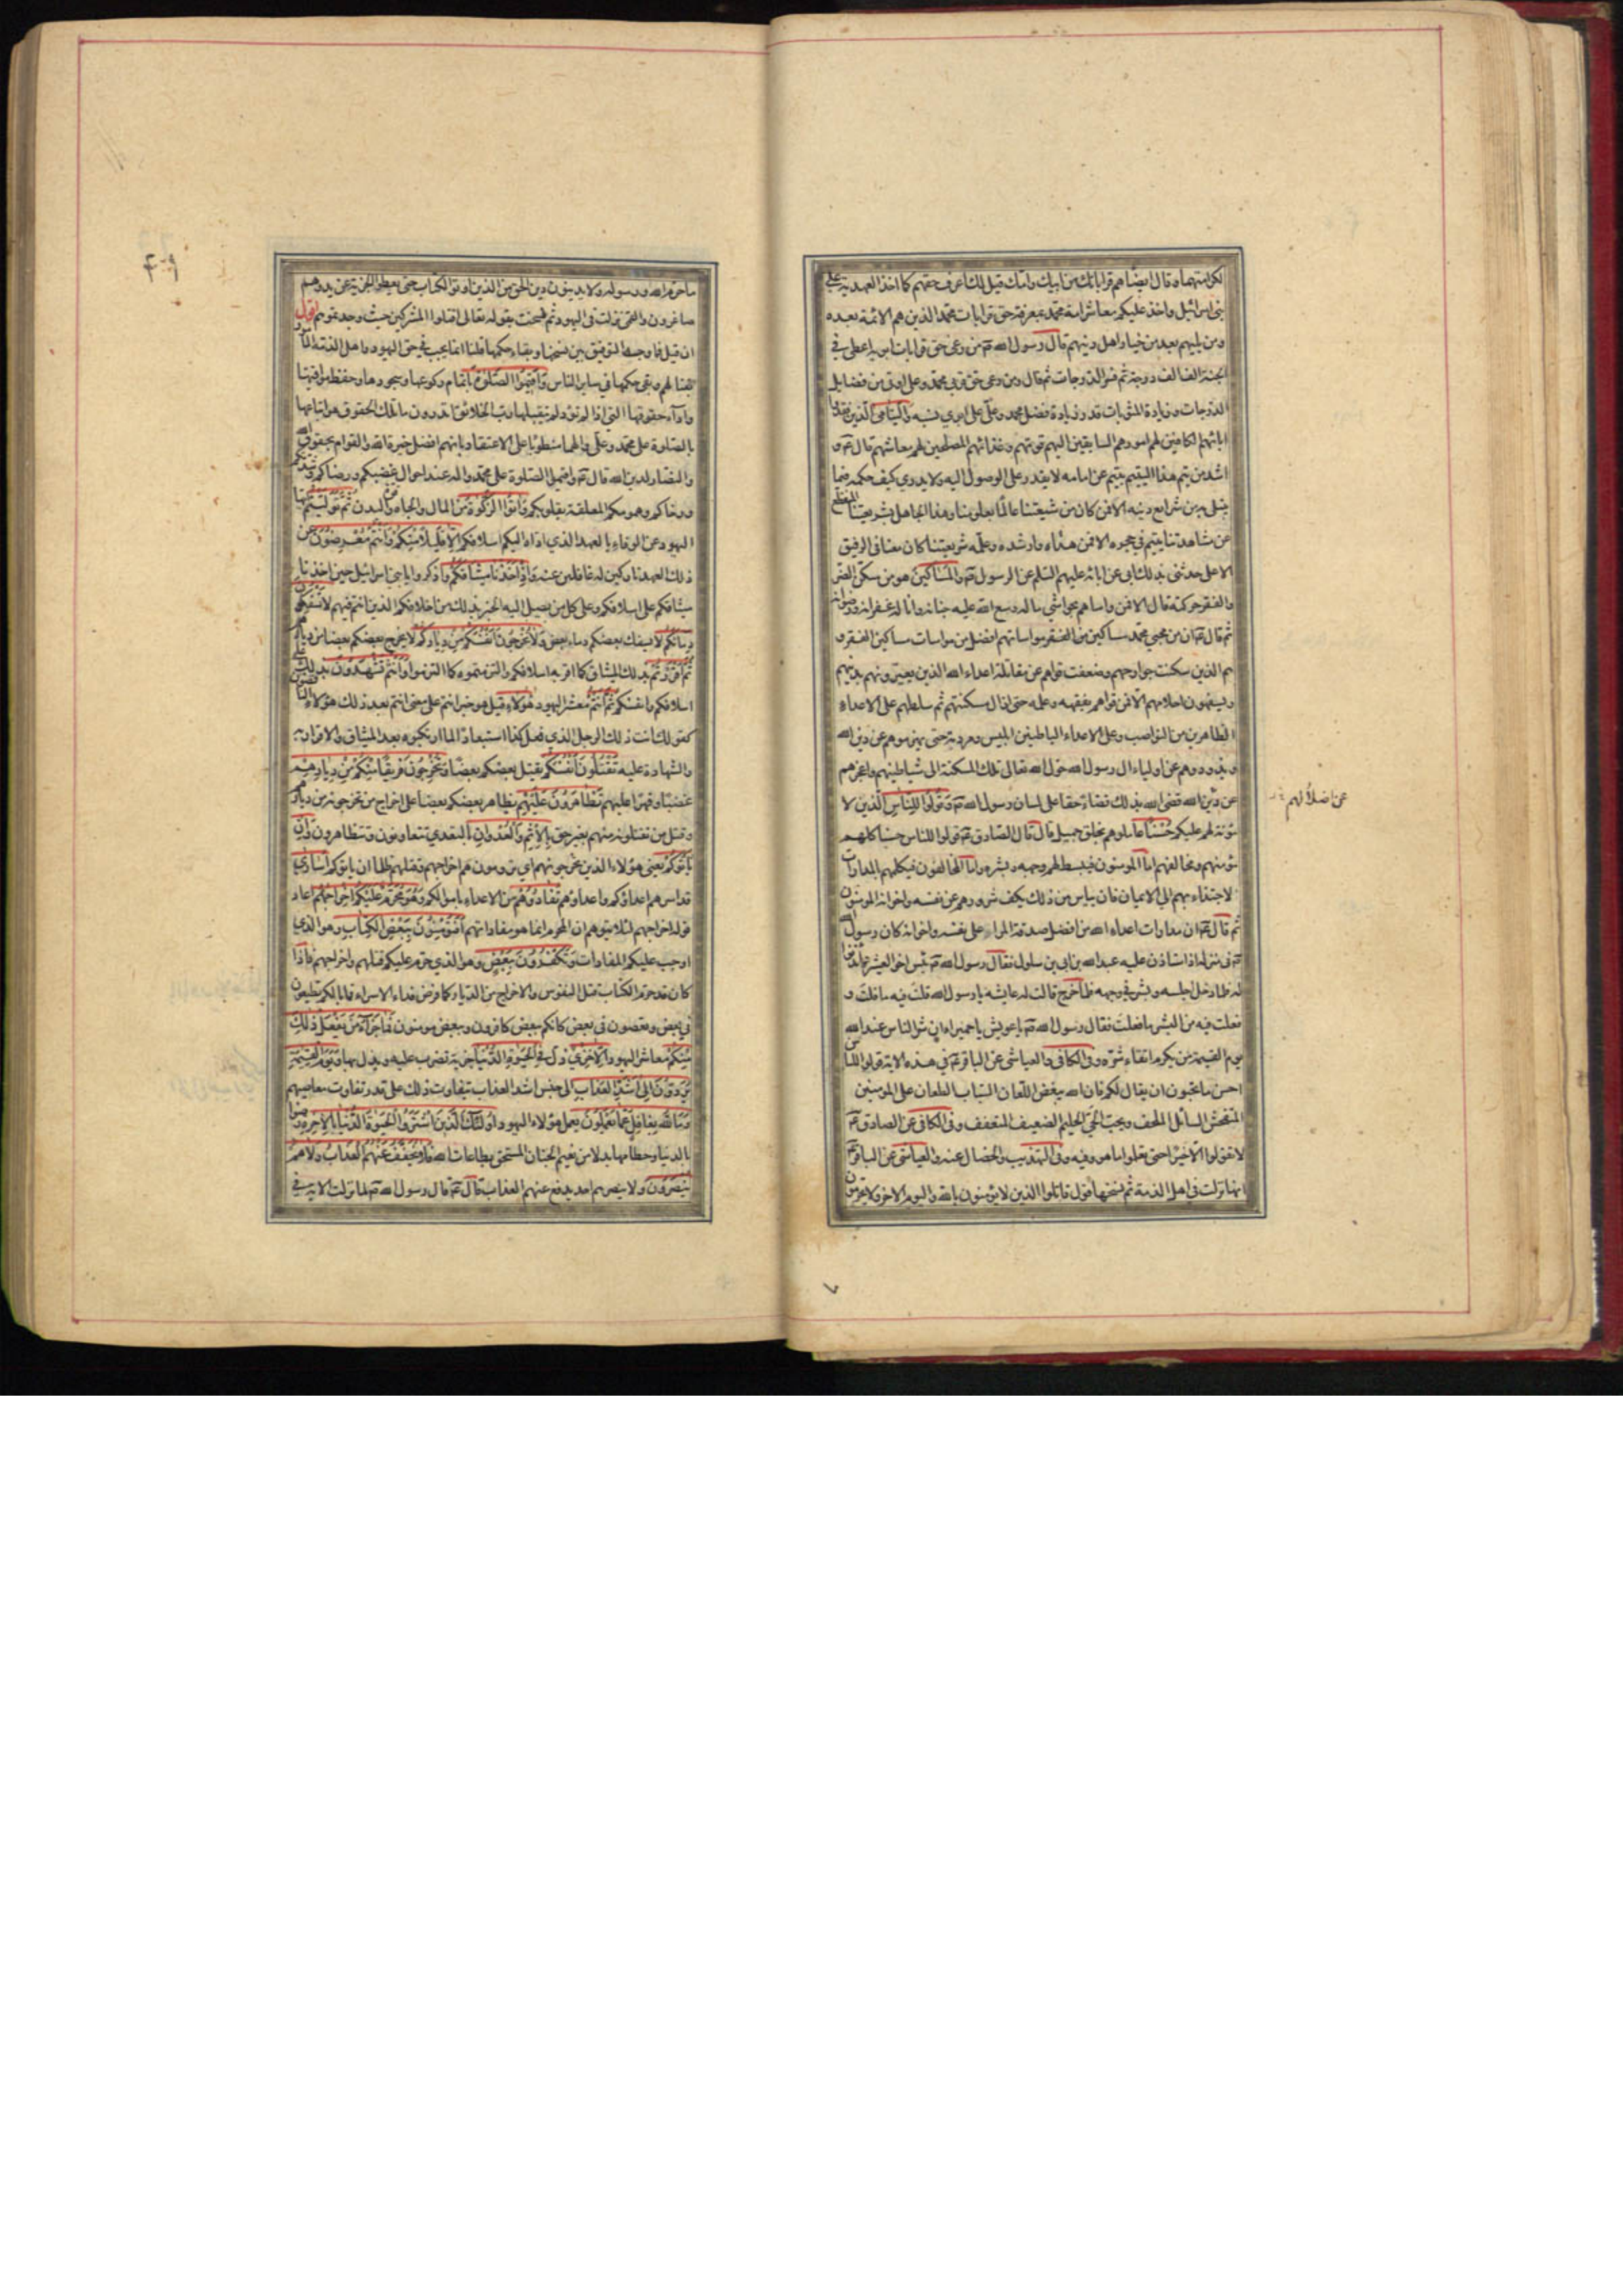 لكرامتهما وقال ايضا هم قراباتك من ابيك وامك قيل لك اعرف حقهم كما اخذ العهد به على
بني اسرائيل واخذ عليكم معاشر امة محمد بمعرفة حق قرابات محمد الذين هم الائمة بعده
ومن يليهم بعد من خيار اهل دينهم قال رسول الله من رعى حق قرابات ابويه اعطي في
الجنة الف الف درجة ثم فسر الدرجات ثم قال ومن رعى حق قربى محمد وعلي اوتي من فضايل
الدرجات وزيادة المثوبات على قدر زيادة فضل محمد وعلي على ابوي نسبه واليتامى الذين فقدوا
ابائهم الكافين لهم امورهم السايقين اليهم قوتهم وغذائهم المصلحين لهم معاشهم قال و
اشد من يتم هذا اليتيم يتيم عن امامه لا يقدر على الوصول اليه ولا يدري كيف حكمه فيما
يبتلى به من شرايع دينه الا فمن كان من شيعتنا عالما بعلومنا وهذا الجاهل بشريعتنا المنقطع
عن مشاهدتنا يتيم في حجره الا فمن هداه وارشده وعلمه شريعتنا كان معنا في الرفيق
الاعلى حدثني بذلك ابي عن ابائه عليهم السلم عن الرسول والمساكين هو من سكن الضر
والفقر حركته قال الا فمن واساهم بحواشي ماله وسع الله عليه جنانه وانا له غفرانه ورضوانه
ثم قال ان من محبي محمد مساكين من الفقر مواساتهم افضل من مواسات مساكين الفقر و
هم الذين سكنت جوارحهم وضعفت قواهم عن مقابلة اعداء الله الذين يعيرونهم بدينهم
ويسفهون احلامهم الا فمن قواهم بفقهه وعلمه حتى ازال مسكنتهم ثم سلطهم على الاعداء
الظاهرين من النواصب وعلى الاعداء الباطنين ابليس ومردته حتى يهزموهم عن دين الله
ويذودوهم عن اولياء ال رسول الله حول الله تعالى تلك المسكنة الى شياطينهم واعجزهم
عن اضلالهم
عن دين الله قضى الله بذلك قضاء حقا على لسان رسول الله وقولوا للناس الذين لا
مؤنة لهم عليكم حسنا عاملوهم بخلق جميل قال قال الصادق قولوا للناس حسنا كلهم
مؤمنهم ومخالفهم اما المومنون فيبسط لهم وجهه وبشره واما المخالفون فيكلمهم بالمدارات
لاجتذاءبهم الى الايمان فان يياس من ذلك يكف شرورهم عن نفسه واخوانه المومنون
ثم قال ان مدارات اعداء الله من افضل صدقة المراء على نفسه واخوانه كان رسول الله
في منزله اذ استاذن عليه عبد الله بن ابي بن سلول فقال رسول الله بئس اخو العشيرة ائذنوا
له فلما دخل اجلسه وبشر في وجهه فلما خرج قالت له عايشة يا رسول الله قلت فيه ما قلت و
فعلت فيه من البشر ما فعلت فقال رسول الله يا عويش يا حميراء ان شر الناس عند الله
يوم القيمة من يكرم اتقاء شره وفي الكافي والعياشي عن الباقر في هذه الاية قولوا للناس
احسن ما تحبون ان يقال لكم فان الله يبغض اللعان السباب الطعان على المومنين
المتفحش السائل الملحف ويحب الحيي الحليم الضعيف المتعفف وفي الكافي عن الصادق
لا تقولوا الا خيرا حتى تعلموا ما هو وفيه وفي التهذيب والخصال عنه والعياشي عن الباقر
انها نزلت في اهل الذمة ثم نسخها قول قاتلوا الذين لا يؤمنون بالله واليوم الاخر ولا يحرمون
ما حرم الله ورسوله ولا يدينون دين الحق من الذين اوتوا الكتاب حتى يعطوا الجزية عن يد وهم
صاغرون والقمي نزلت في اليهود ثم نسخت بقوله تعالى اقتلوا المشركين حيث وجدتموهم اقول
ان قيل فما وجه التوفيق بين نسخها وبقاء حكمها قلنا انما يجب في حق اليهود واهل الذمة
لهم وبقي حكمها في ساير الناس واقيموا الصلوة باتمام ركوعها وسجودها وحفظ مواقيتها
واداء حقوقها التي اذا لم تؤد لم يتقبلها رب الخلائق اتدرون ما تلك الحقوق هو اتباعها
بالصلوة على محمد وعلي والهما منطويا على الاعتقاد بانهم افضل خيرة الله والقوام بحقوق الله
والنصار لدين الله قال واقيموا الصلوة على محمد واله عند احوال غضبكم ورضاكم وشدتكم
ورخاكم وهمومكم المعلقة بقلوبكم واتوا الزكوة من المال والجاه وقوة البدن ثم توليتم ايها
اليهود عن الوفاء بالعهد الذي اداه اليكم اسلافكم الا قليلا منكم وانتم معرضون عن
ذلك العهد تاركين له غافلين عنه واذ اخذنا ميثاقكم واذكروا يا بني اسرائيل حين اخذنا
ميثاقكم على اسلافكم وعلى كل من يصل اليه الخبر بذلك من اخلافكم الذين انتم فيهم لا تسفكون
دمائكم لا يسفك بعضكم دماء بعض ولا تخرجون انفسكم من دياركم لا يخرج بعضكم بعضا من ديارهم
ثم اقررتم بذلك الميثاق كما اقر به اسلافكم والتزمتموه كما التزموا وانتم تشهدون بذلك على
اسلافكم وانفسكم ثم انتم معشر اليهود هؤلاء قيل هو خبر انتم على معنى انتم بعد ذلك هؤلاء الناقضون
كقولك انت ذلك الرجل الذي فعل كذا استبعادا لما ارتكبوه بعد الميثاق والاقرار به
والشهادة عليه تقتلون انفسكم يقتل بعضكم بعضا وتخرجون فريقا منكم من ديارهم
غضبا وقهرا عليهم تظاهرون عليهم يظاهر بعضكم بعضا على اخراج من تخرجونه من ديارهم
وقتل من تقتلونه منهم بغير حق بالاثم والعدوان بالتعدي تتعاونون وتتظاهرون وان
ياتوكم يعني هؤلاء الذين تخرجونهم اي ترومون اخراجهم وقتلهم ظلما ان ياتوكم اسارى
قد اسرهم اعداؤكم واعداؤهم تفادوهم من الاعداء باموالكم وهو محرم عليكم اخراجهم اعاد
قوله اخراجهم لئلا يتوهم ان المحرم انما هو مفاداتهم افتؤمنون ببعض الكتاب وهو الذي
اوجب عليكم المفادات وتكفرون ببعض وهو الذي حرم عليكم قتلهم واخراجهم فاذا
كان قد حرم الكتاب قتل النفوس والاخراج من الديار كما فرض فداء الاسراء فما بالكم تطيعون
في بعض وتعصون في بعض كانكم ببعض كافرون وببعض مومنون فما جزاء من يفعل ذلك
منكم معاشر اليهود الا خزي ذل في الحيوة الدنيا جزية تضرب عليه ويذل بها ويوم القيمة
يردون الى اشد العذاب الى جنس اشد العذاب يتفاوت ذلك على قدر تفاوت معاصيهم
وما الله بغافل عما تعملون يعمل هؤلاء اليهود اولئك الذين اشتروا الحيوة الدنيا بالاخرة رضوا
بالدنيا وحطامها بدلا من نعيم الجنان المستحق بطاعات الله فلا يخفف عنهم العذاب ولا هم
ينصرون ولا ينصرهم احد يدفع عنهم العذاب قال قال رسول الله لما نزلت الاية في